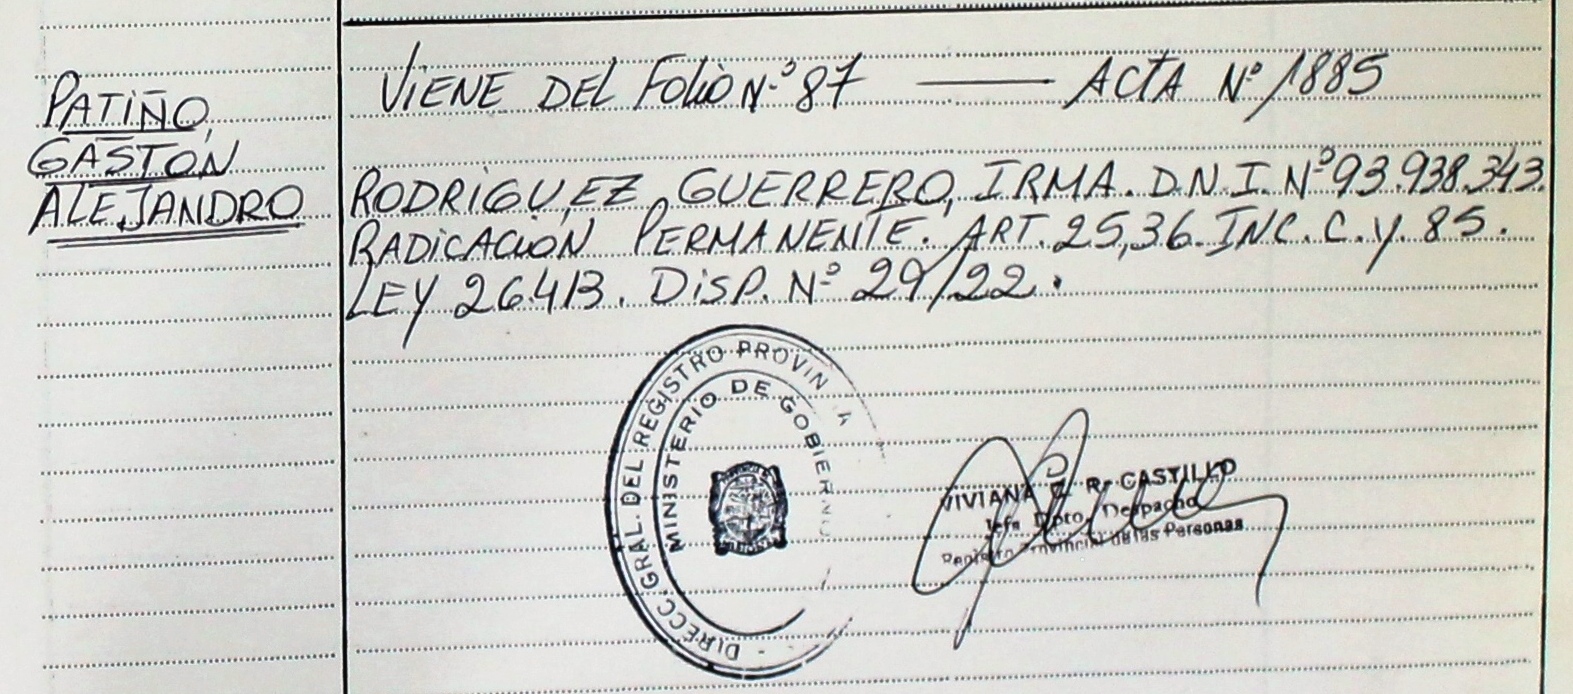 PATIÑO,
GASTON
ALEJANDRO
VIENE DEL FOLIO N.º 87 ——— ACTA Nº 1885
RODRIGUEZ GUERRERO, IRMA. D.N.I. Nº 93.938.343.
RADICACION PERMANENTE. ART. 25,36. INC. C. Y. 85.
LEY 26.413. DISP. Nº 29/22.
DIRECC. GRAL. DEL REGISTRO PROVIN
MINISTERIO DE GOBIERNO
VIVIANA E. R. CASTILLO
Jefa Dpto. Despacho
Registro Provincial de las Personas